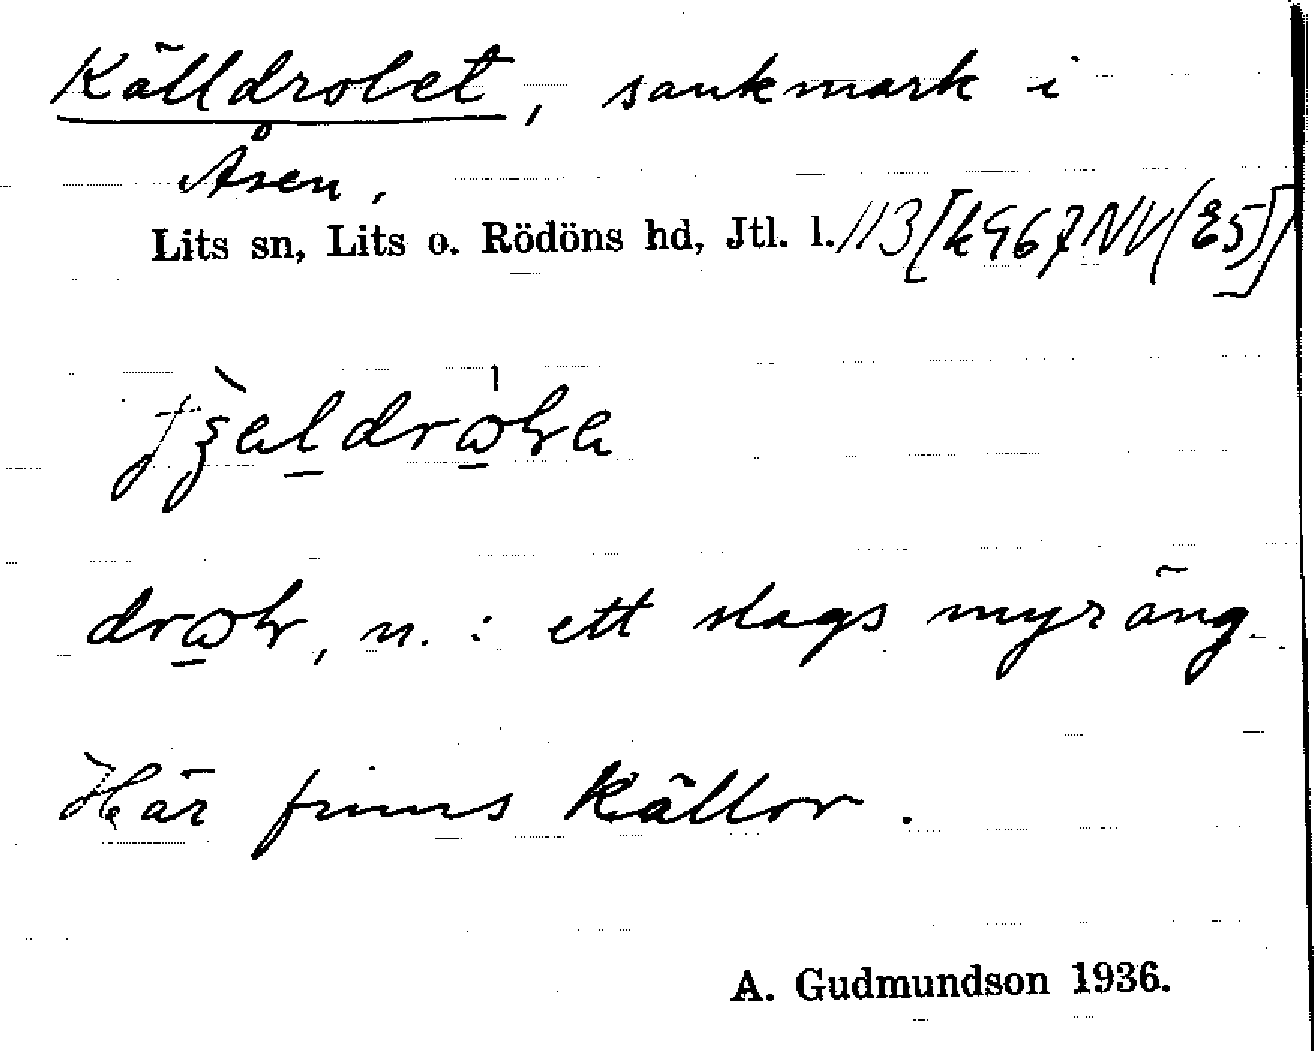 Källdrobet, sankmark i
Åsen.
Lits sn, Lits o. Rödöns hd, Jtl. l. 113 [k967NV(E5)]
n. : ett slags myräng
Här finns källor.
A. Gudmundson 1936.